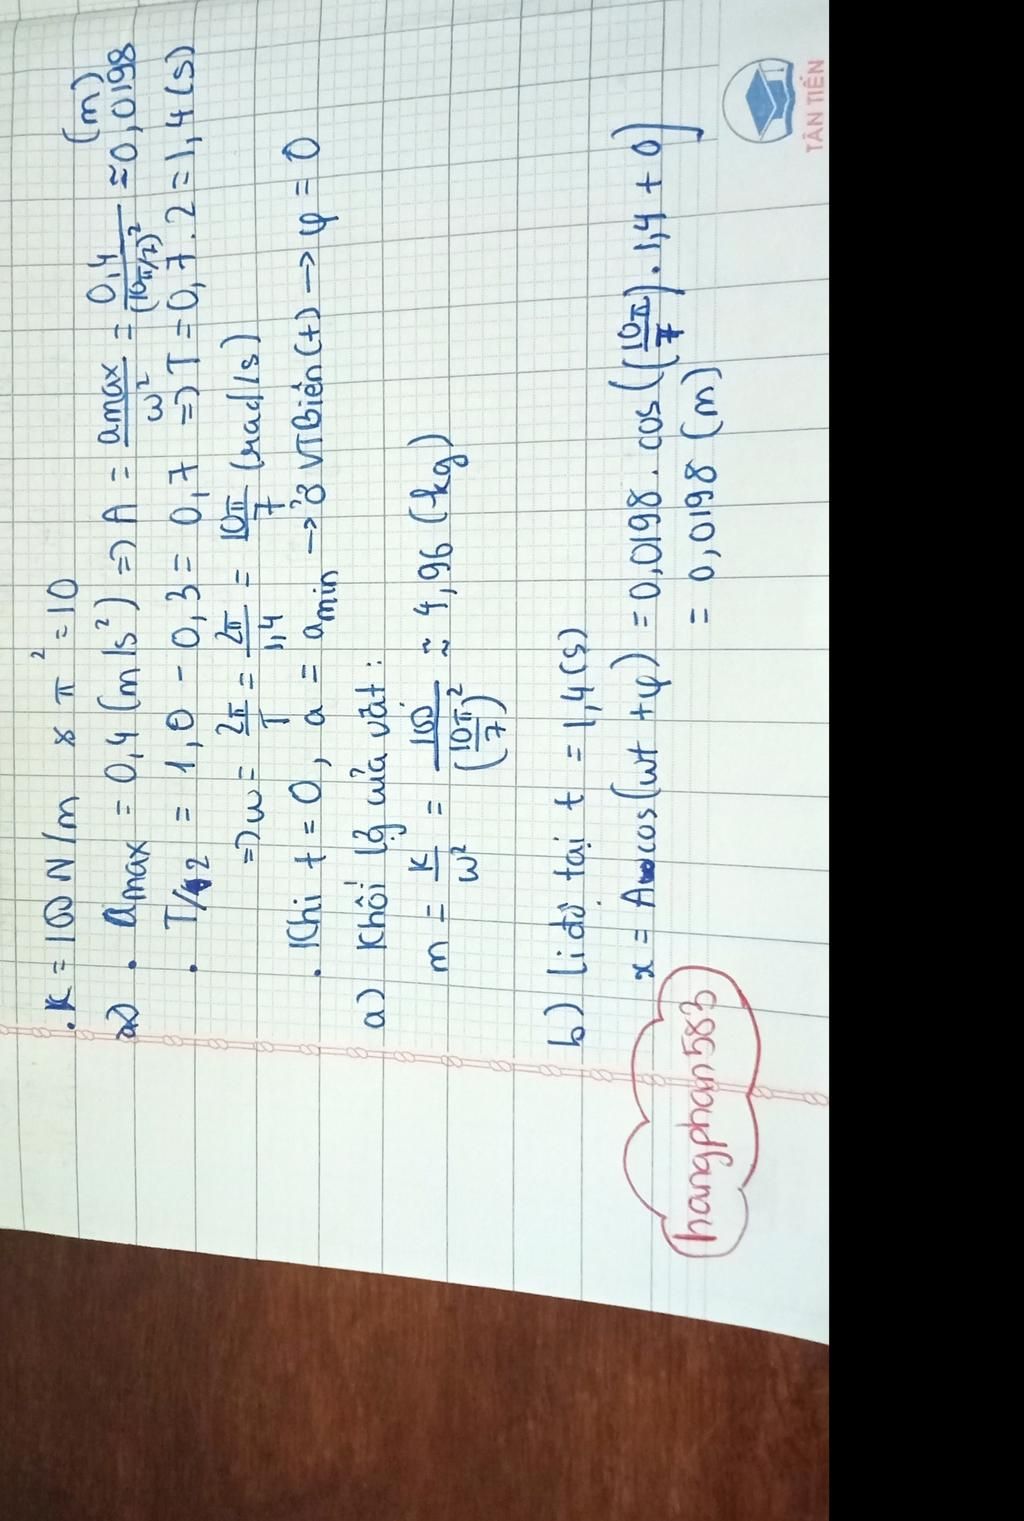 . K = 100 N/m & π² = 10
a) . amax = 0,4 (m/s²) => A = amax/ω² = 0,4/(10π/7)² ≈ 0,0198 (m)
. T/2 = 1,0 - 0,3 = 0,7 => T = 0,7 . 2 = 1,4 (s)
=> ω = 2π/T = 2π/1,4 = 10π/7 (rad/s)
. Khi t = 0, a = amin → ở VT Biên (+) → φ = 0
a) Khối lg của vật:
m = K/ω² = 100/(10π/7)² ≈ 4,96 (kg)
b) li độ tại t = 1,4 (s)
x = A cos(ωt + φ) = 0,0198 . cos((10π/7) . 1,4 + 0)
= 0,0198 (m)
hoangphong583
TÂN TIẾN